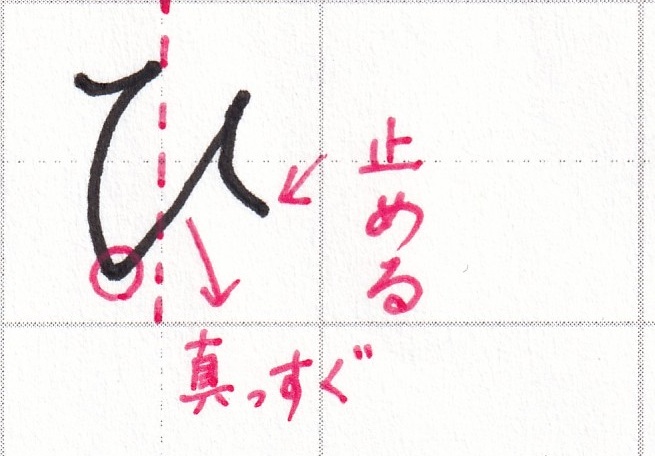 ひ
止める
真っすぐ